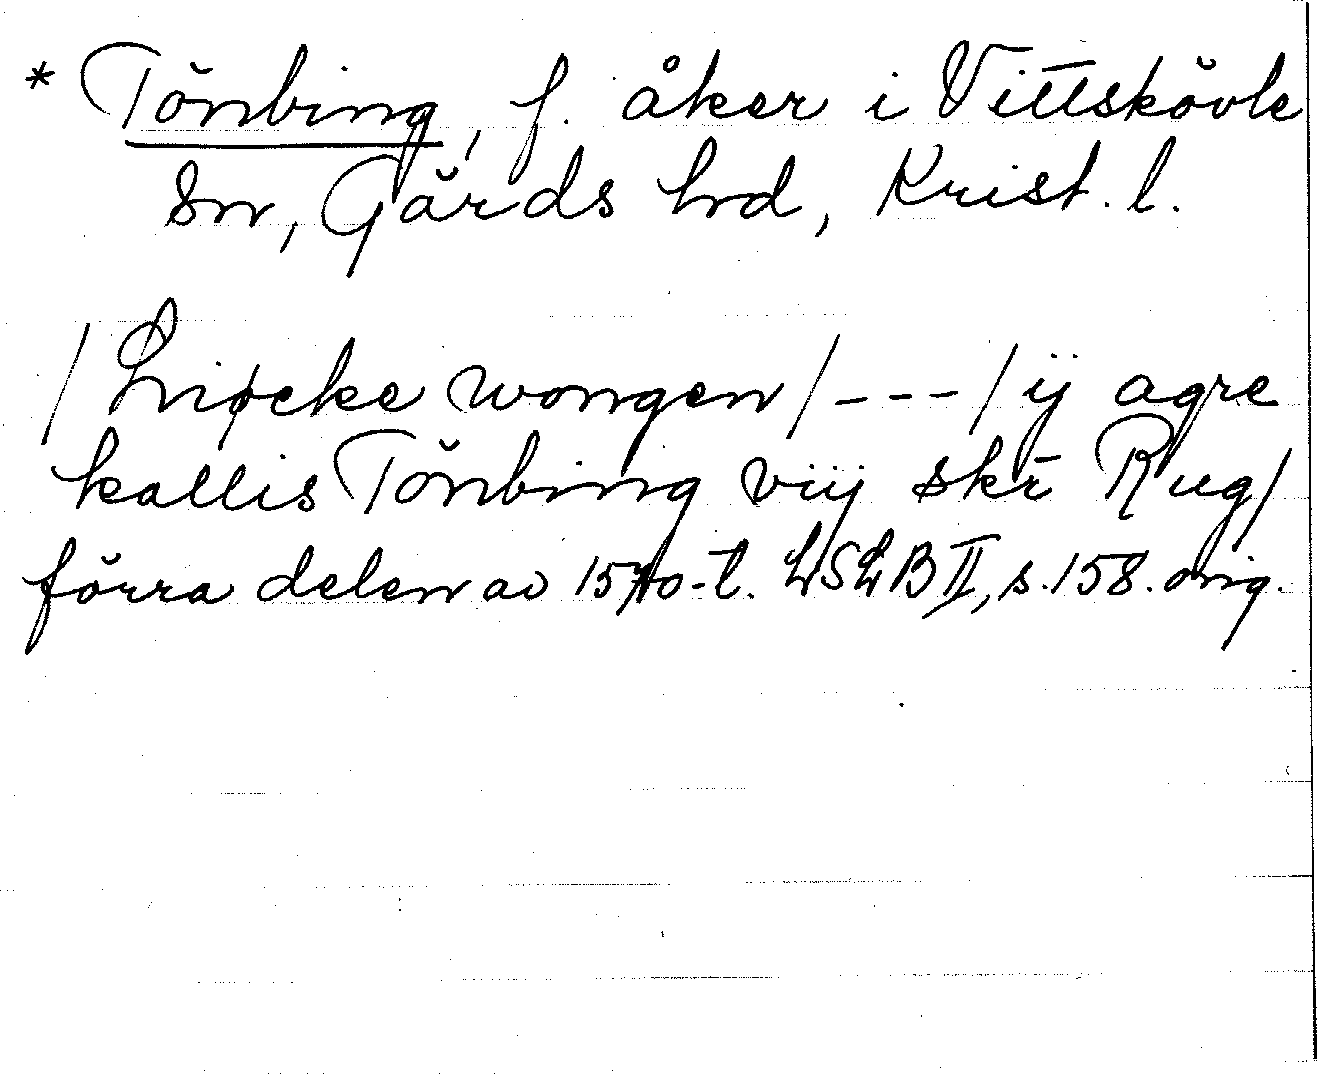 * Tönbing, f. åker i Vittskövle
sn, Gärds hrd, Krist. l.
/ Hviøcke wongen / - - - / ij agre
kallis Tönbing viij skr̄ Rug /
förra delen av 1570-t. LSLB II, s. 158. orig.